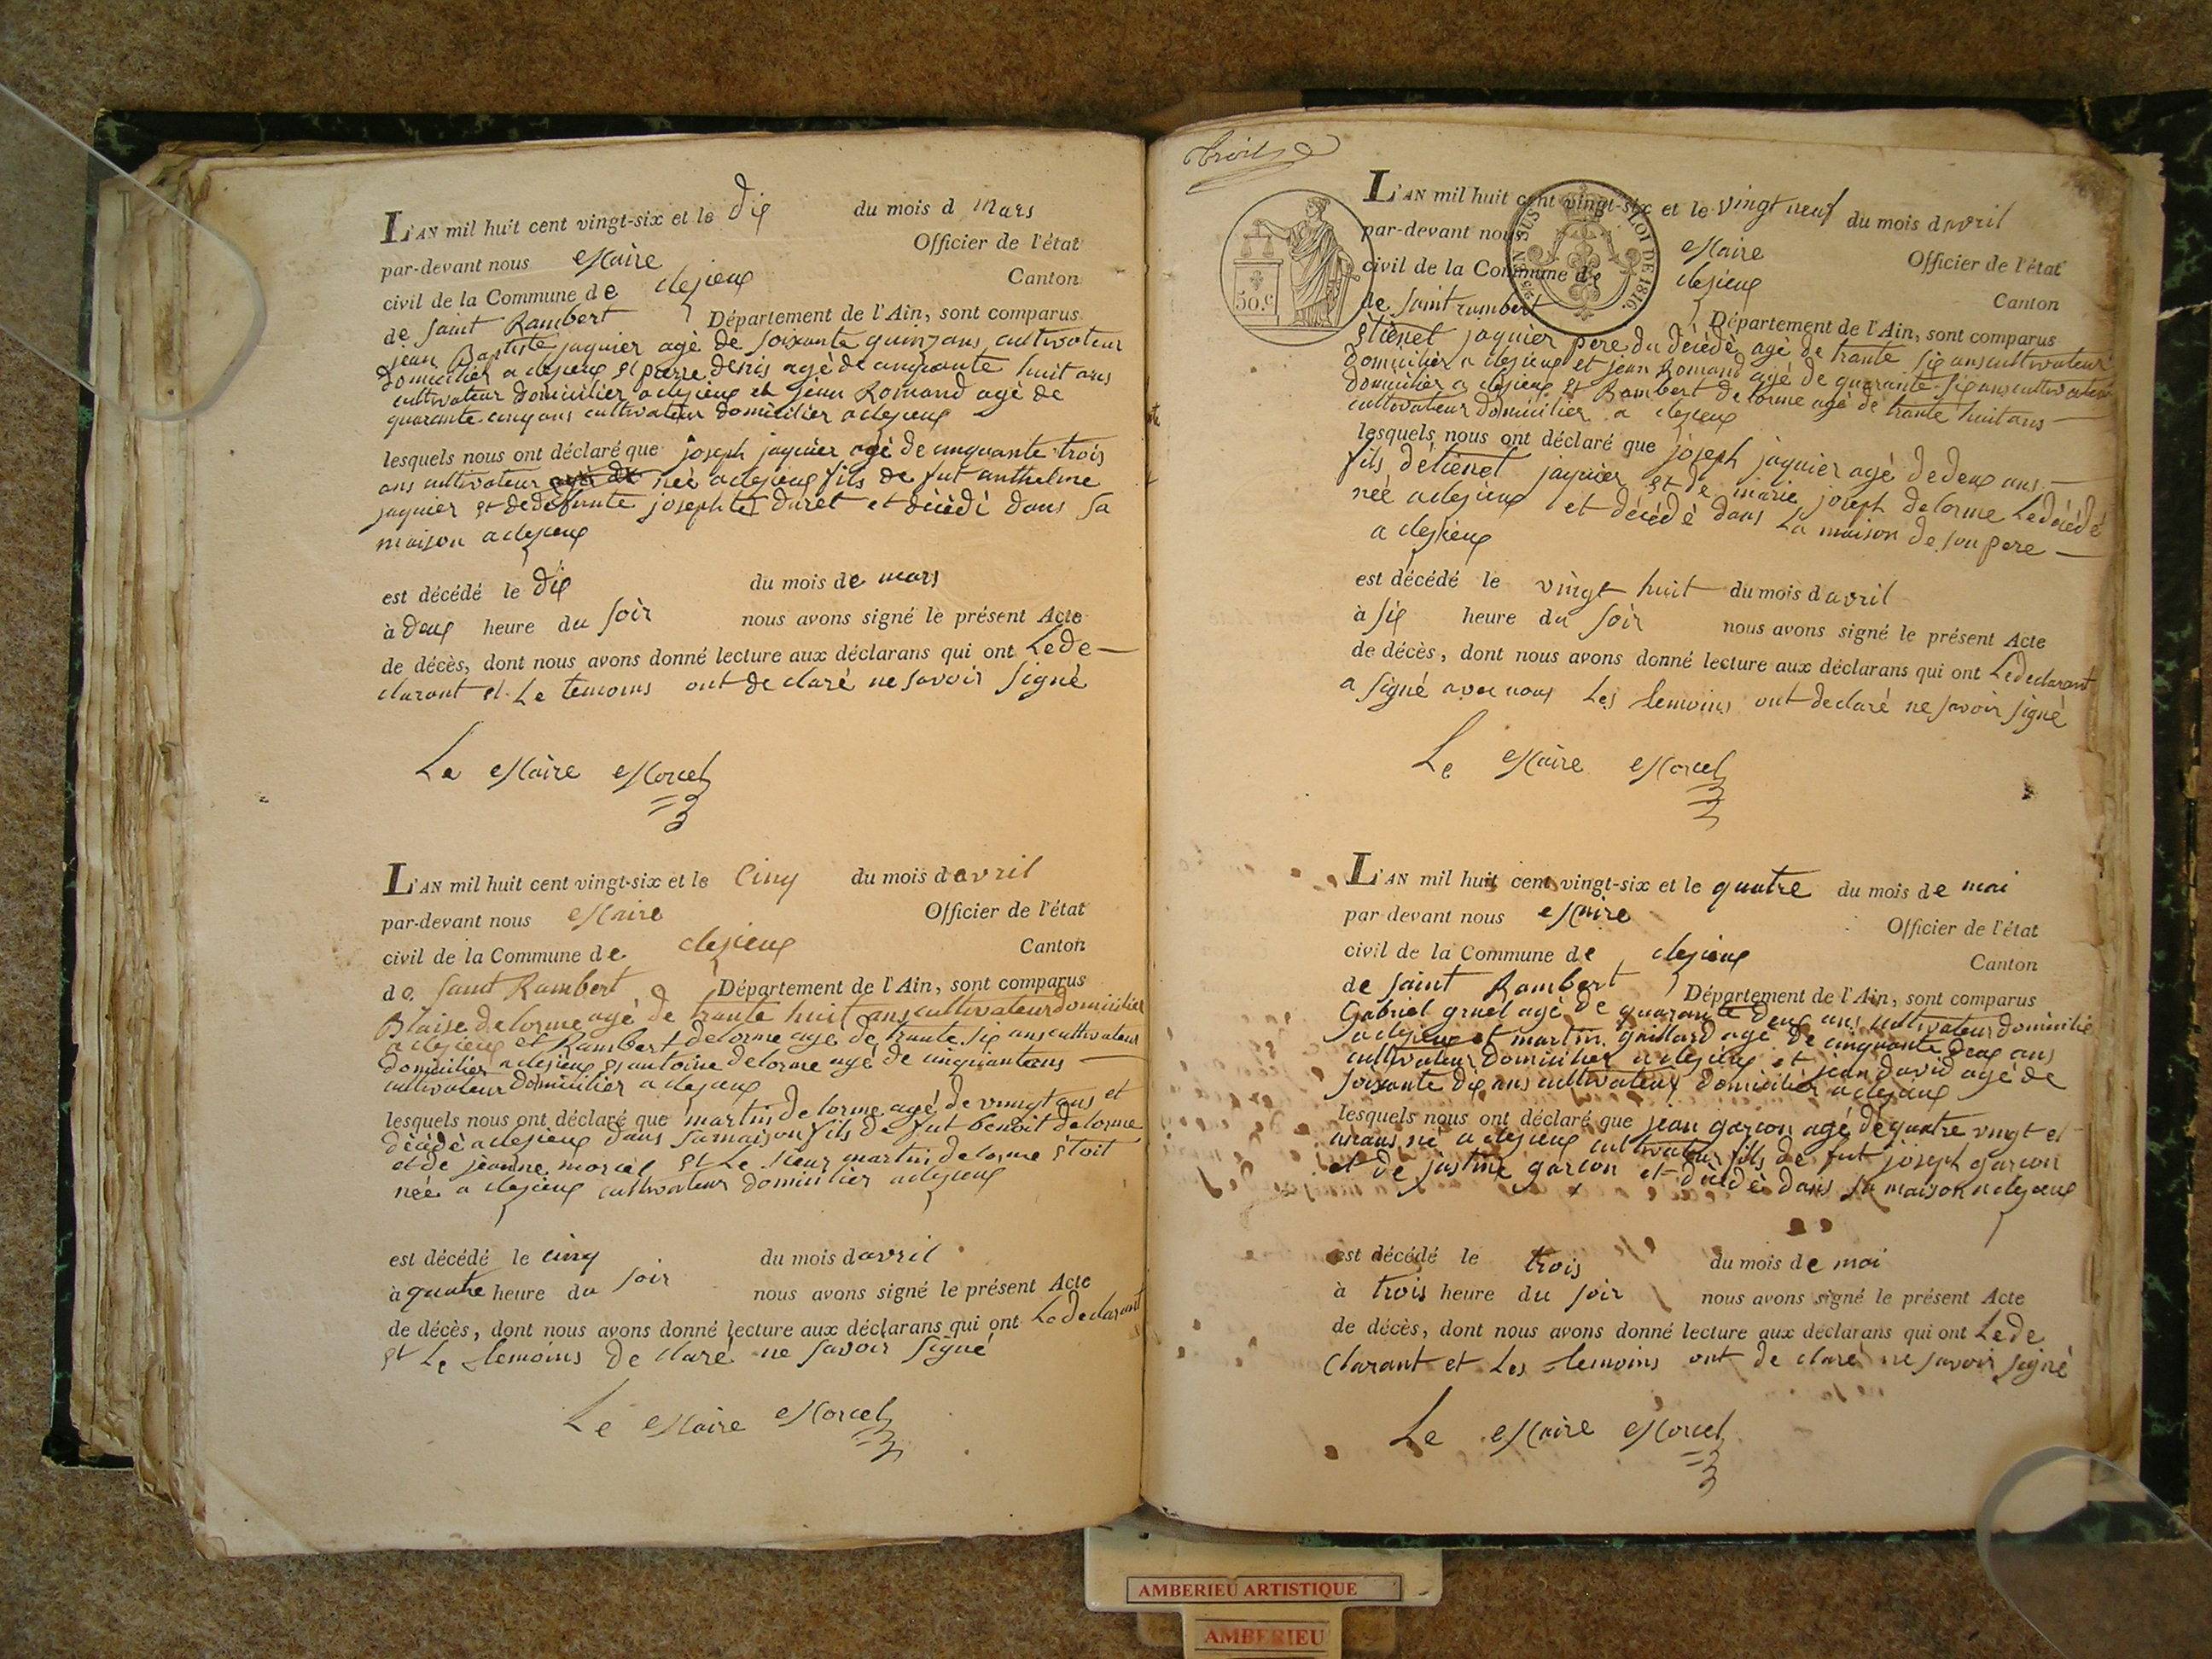 L'AN mil huit cent vingt-six et le dix du mois d mars
par-devant nous Maire Officier de l'état
civil de la Commune de clezieux Canton
de saint Rambert Département de l'Ain, sont comparus
jean Baptiste jaquier agé de soixante quinz ans cultivateur
domicilier a clezieux et pierre denis agé de cinquante huit ans
cultivateur domicilier a clezieux et jean Romand agé de
quarante cinq ans cultivateur domicilier a clezieux
lesquels nous ont déclaré que joseph jaquier agé de cinquante trois
ans cultivateur née a clezieux fils de fut anthelme
jaquier et de defunte josephte duret et décédé dans sa
maison a clezieux
est décédé le dix du mois de mars
à deux heure du soir nous avons signé le présent Acte
de décès, dont nous avons donné lecture aux déclarans qui ont Le de
clarant et Le temoins ont de claré ne savoir signé
Le Maire Morcel
L'AN mil huit cent vingt-six et le cinq du mois d avril
par-devant nous Maire Officier de l'état
civil de la Commune de clezieux Canton
de saint Rambert Département de l'Ain, sont comparus
Blaise delorme agé de trante huit ans cultivateur domicilier
a clezieux et Rambert delorme age de trante six ans cultivateur
domicilier a clezieux et antoine delorme agé de cinquante ans
cultivateur domicilier a clezieux
lesquels nous ont déclaré que martin delorme agé de vingt ans et
décédé a clezieux dans sa maison fils de fut benoit delorme
et de jeanne morcel et Le sieur martin delorme étoit
née a clezieux cultivateur domicilier a clezieux
est décédé le cinq du mois d avril
à quatre heure du soir nous avons signé le présent Acte
de décès, dont nous avons donné lecture aux déclarans qui ont Le declarant
et Le temoins de claré ne savoir signé
Le Maire Morcel
trois
50.c
EN SUS
LOI DE 1816.
L'AN mil huit cent vingt-six et le vingt neuf du mois d avril
par-devant nous Maire Officier de l'état
civil de la Commune de clezieux Canton
de saint rambert Département de l'Ain, sont comparus
étienet jaquier pere du décédé agé de trante six ans cultivateur
domicilier a clezieux et jean Romand agé de quarante six ans cultivateur
domicilier a clezieux et Rambert delorme agé de trante huit ans
cultivateur domicilier a clezieux
lesquels nous ont déclaré que joseph jaquier agé de deux ans
fils d'étienet jaquier et de marie joseph delorme Le décédé
née a clezieux et décédé dans La maison de son pere
a clezieux
est décédé le vingt huit du mois d avril
à six heure du soir nous avons signé le présent Acte
de décès, dont nous avons donné lecture aux déclarans qui ont Le declarant
a signé avec nous Les temoins ont declaré ne savoir signé
Le Maire Morcel
L'AN mil huit cent vingt-six et le quatre du mois de mai
par-devant nous Maire Officier de l'état
civil de la Commune de clezieux Canton
de saint Rambert Département de l'Ain, sont comparus
Gabriel gruel agé de quarante deux ans cultivateur domicilié
a clezieux et martin gaillard agé de cinquante deux ans
cultivateur domicilier a clezieux et jean david agé de
soixante dix ans cultivateur domicilié a clezieux
lesquels nous ont déclaré que jean garcon agé de quatre vingt et
un ans né a clezieux cultivateur fils de fut joseph garcon
et de justine garcon et décédé dans sa maison a clezieux
est décédé le trois du mois de mai
à trois heure du soir nous avons signé le présent Acte
de décès, dont nous avons donné lecture aux déclarans qui ont Le de
clarant et Les temoins ont de claré ne savoir signé
Le Maire Morcel
AMBERIEU ARTISTIQUE
AMBERIEU